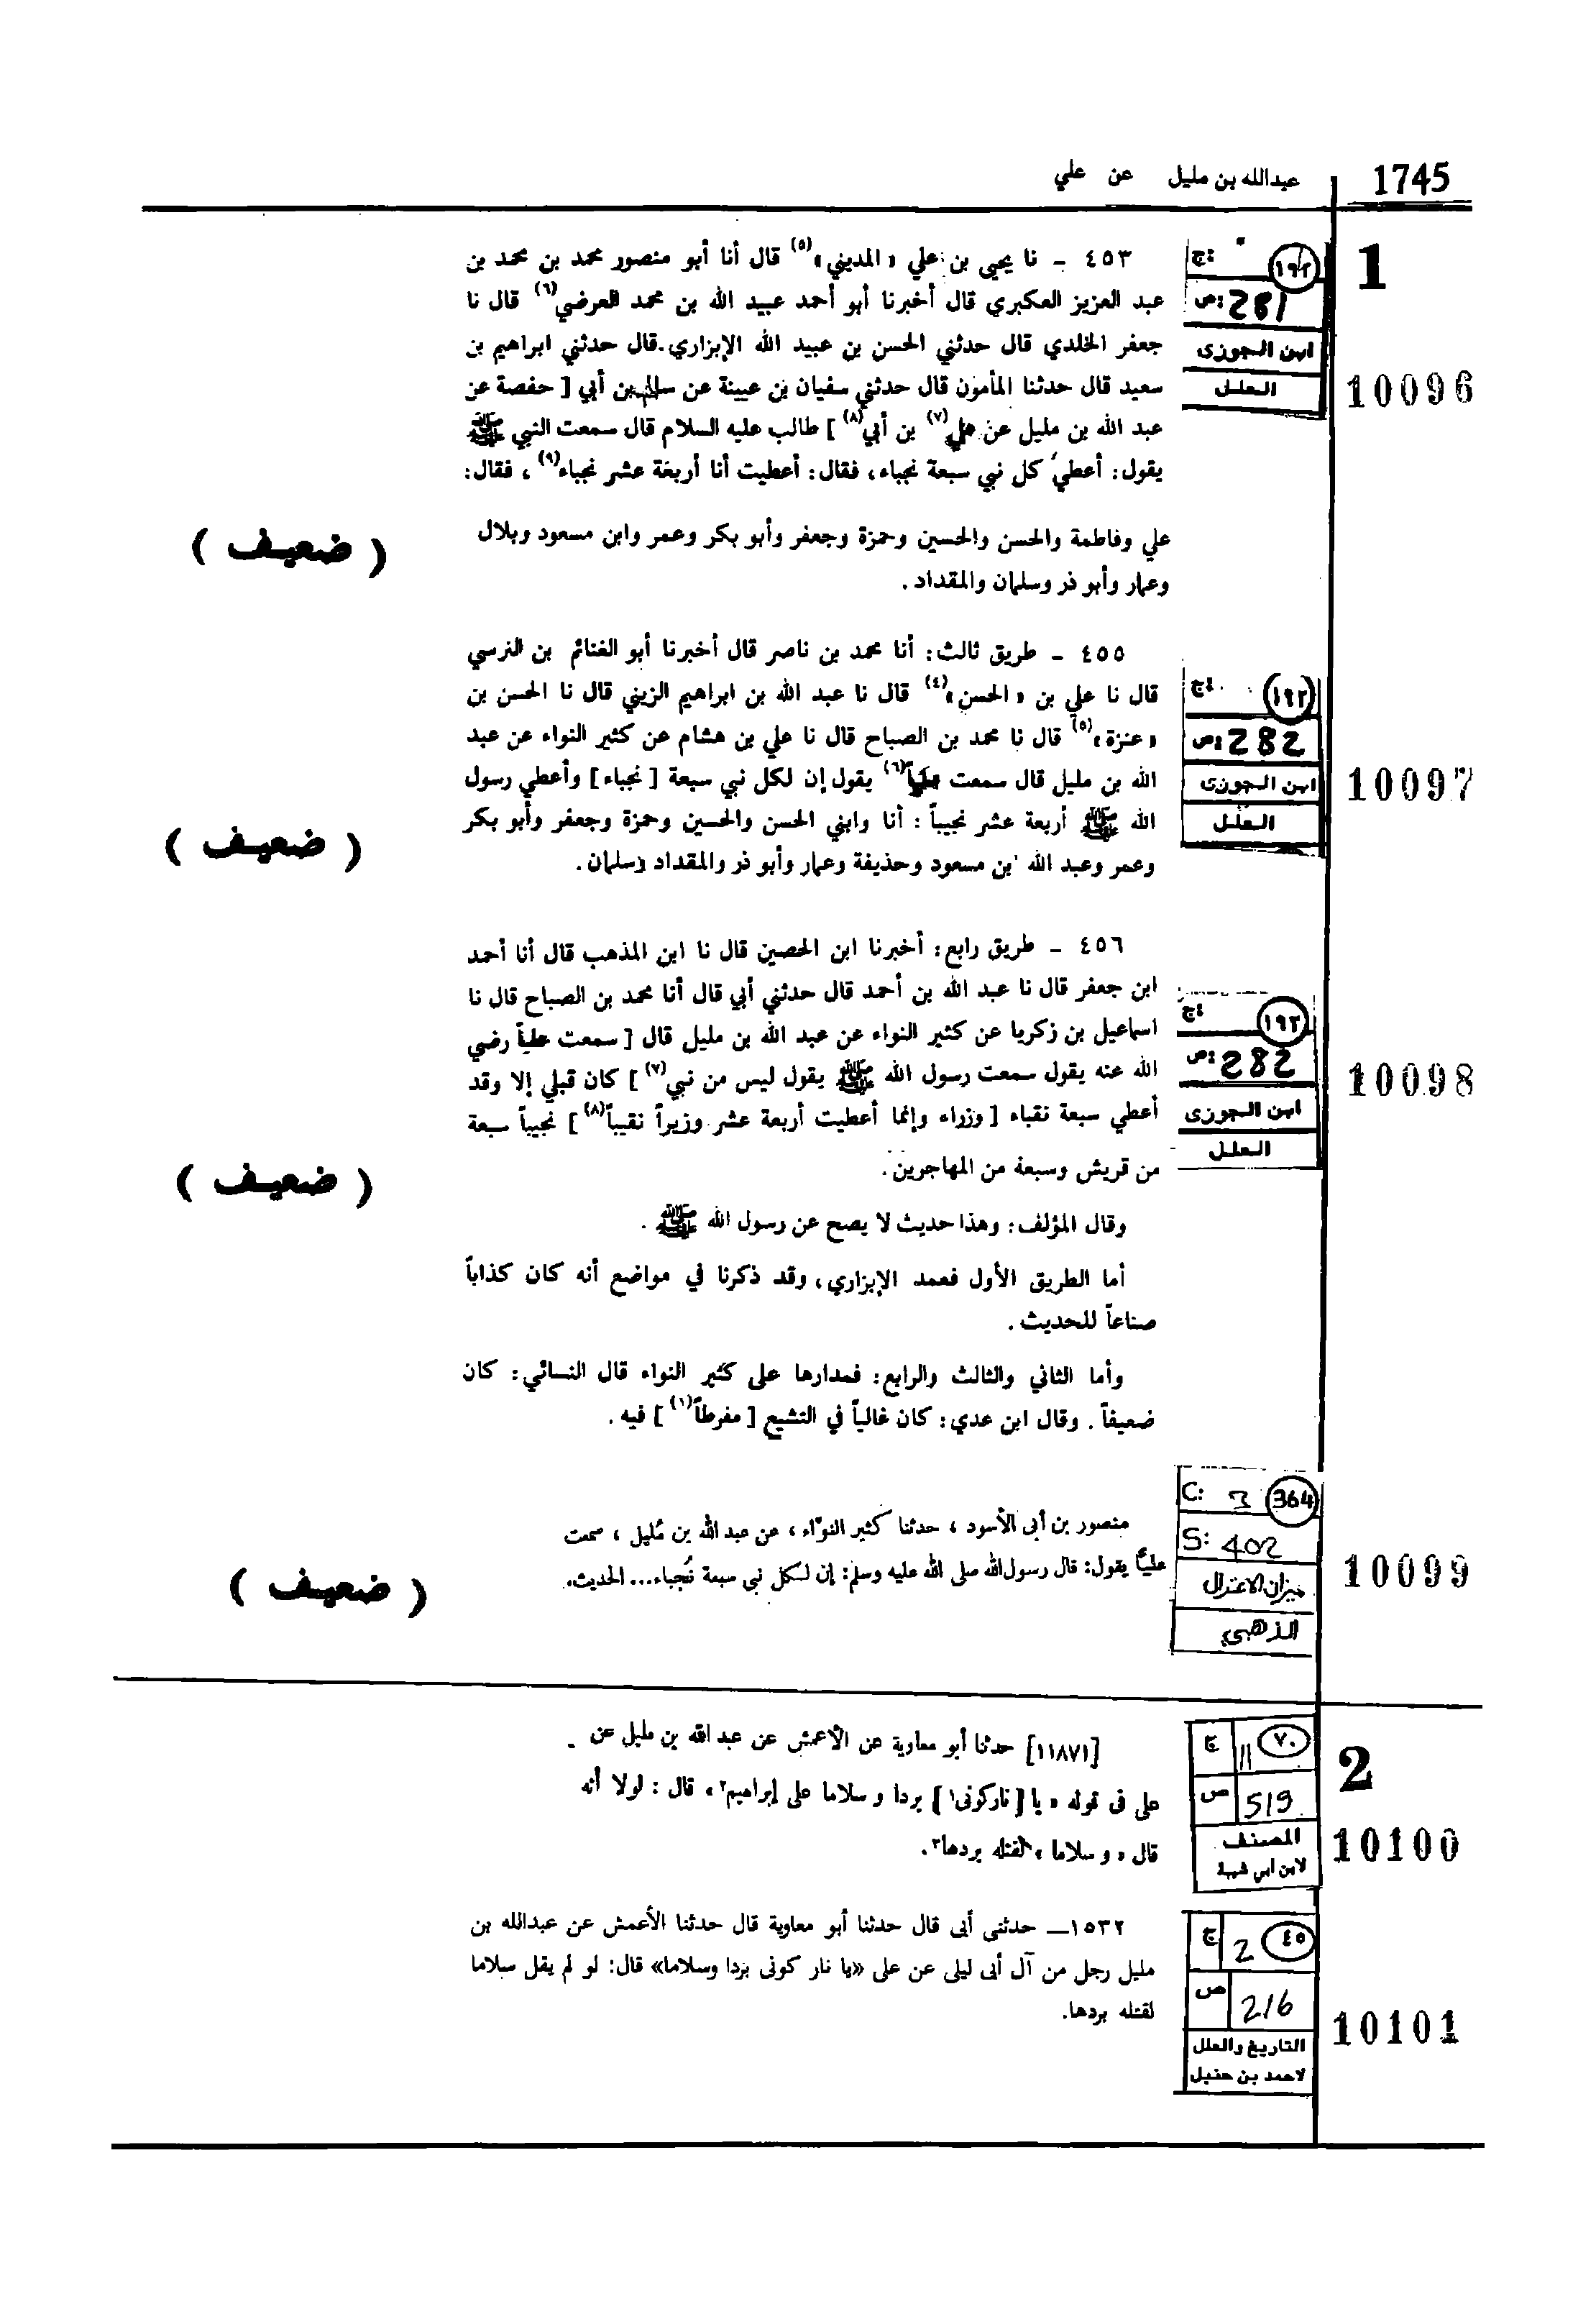 1745
عبدالله بن مليل عن علي
1
ج:
١٩٢
ص: 281
ابن الجوزى
العلل
10096
٤٥٣ - نا يحيى بن علي « المديني »(٥) قال أنا أبو منصور محمد بن محمد بن
عبد العزيز العكبري قال أخبرنا أبو أحمد عبيد الله بن محمد العرضي(٦) قال نا
جعفر الخلدي قال حدثني الحسن بن عبيد الله الإبزاري قال حدثني ابراهيم بن
سعيد قال حدثنا المأمون قال حدثني سفيان بن عيينة عن سالم بن أبي [ حفصة عن
عبد الله بن مليل عن علي(٧) بن أبي(٨) ] طالب عليه السلام قال سمعت النبي ﷺ
يقول: أعطي كل نبي سبعة نجباء، فقال: أعطيت أنا أربعة عشر نجباء(٩)، فقال:
علي وفاطمة والحسن والحسين وحمزة وجعفر وأبو بكر وعمر وابن مسعود وبلال
وعمار وأبو ذر وسلمان والمقداد.
( ضعيف )
ج:
١٩٢
ص: 282
ابن الجوزى
العلل
10097
٤٥٥ - طريق ثالث: أنا محمد بن ناصر قال أخبرنا أبو الغنائم بن النرسي
قال نا علي بن « الحسن »(٤) قال نا عبد الله بن ابراهيم الزيني قال نا الحسن بن
« عنزة »(٥) قال نا محمد بن الصباح قال نا علي بن هشام عن كثير النواء عن عبد
الله بن مليل قال سمعت علياً(٦) يقول إن لكل نبي سبعة [ نجباء ] وأعطي رسول
الله ﷺ أربعة عشر نجيباً: أنا وابني الحسن والحسين وحمزة وجعفر وأبو بكر
وعمر وعبد الله بن مسعود وحذيفة وعمار وأبو ذر والمقداد وسلمان.
( ضعيف )
ج:
١٩٢
ص: 282
ابن الجوزى
العلل
10098
٤٥٦ - طريق رابع: أخبرنا ابن الحصين قال نا ابن المذهب قال أنا أحمد
ابن جعفر قال نا عبد الله بن أحمد قال حدثني أبي قال أنا محمد بن الصباح قال نا
اسماعيل بن زكريا عن كثير النواء عن عبد الله بن مليل قال [ سمعت علياً رضي
الله عنه يقول سمعت رسول الله ﷺ يقول ليس من نبي(٧) ] كان قبلي إلا وقد
أعطي سبعة نقباء [ وزراء وإنما أعطيت أربعة عشر وزيراً نقيباً(٨) ] نجيباً سبعة
من قريش وسبعة من المهاجرين.
( ضعيف )
وقال المؤلف: وهذا حديث لا يصح عن رسول الله ﷺ.
أما الطريق الأول فعمد الإبزاري، وقد ذكرنا في مواضع أنه كان كذاباً
صناعاً للحديث.
وأما الثاني والثالث والرابع: فمدارها على كثير النواء قال النسائي: كان
ضعيفاً. وقال ابن عدي: كان غالياً في التشيع [ مفرطاً(١) ] فيه.
C: 3
364
S: 402
ميزان الاعتدال
الذهبي
10099
منصور بن أبى الأسود ، حدثنا كثير النوّاء ، عن عبد الله بن مُليل ، سمعت
عليًّا يقول: قال رسول الله صلى الله عليه وسلم: إن لكل نبى سبعة نُجباء... الحديث.
( ضعيف )
2
ج 11
٧٠
ص 519
المصنف
لابن ابي شيبة
10100
[١١٨٧١] حدثنا أبو معاوية عن الأعمش عن عبد الله بن مليل عن
على فى قوله « يا [ ناركونى١ ] بردا و سلاما على إبراهيم٢ » قال : لولا أنه
قال « و سلاما » لقتله بردها٣.
ج 2
٤٥
ص 216
التاريخ والعلل
لاحمد بن حنبل
10101
١٥٣٢ــ حدثنى أبى قال حدثنا أبو معاوية قال حدثنا الأعمش عن عبدالله بن
مليل رجل من آل أبى ليلى عن على «يا نار كونى بردا وسلاما» قال: لو لم يقل سلاما
لقتله بردها.